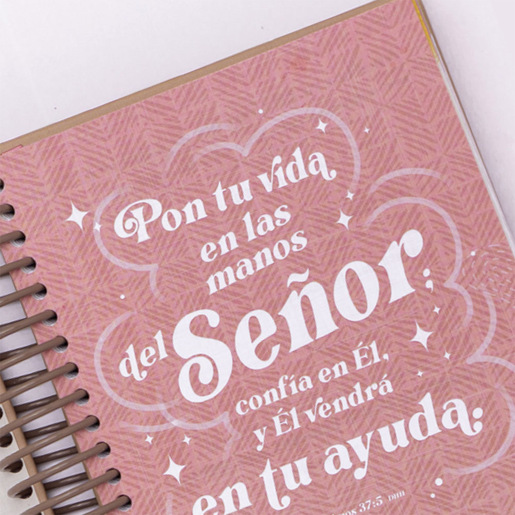 Pon tu vida
en las
manos
del Señor;
confía en Él,
y Él vendrá
en tu ayuda.
37:5 DHH